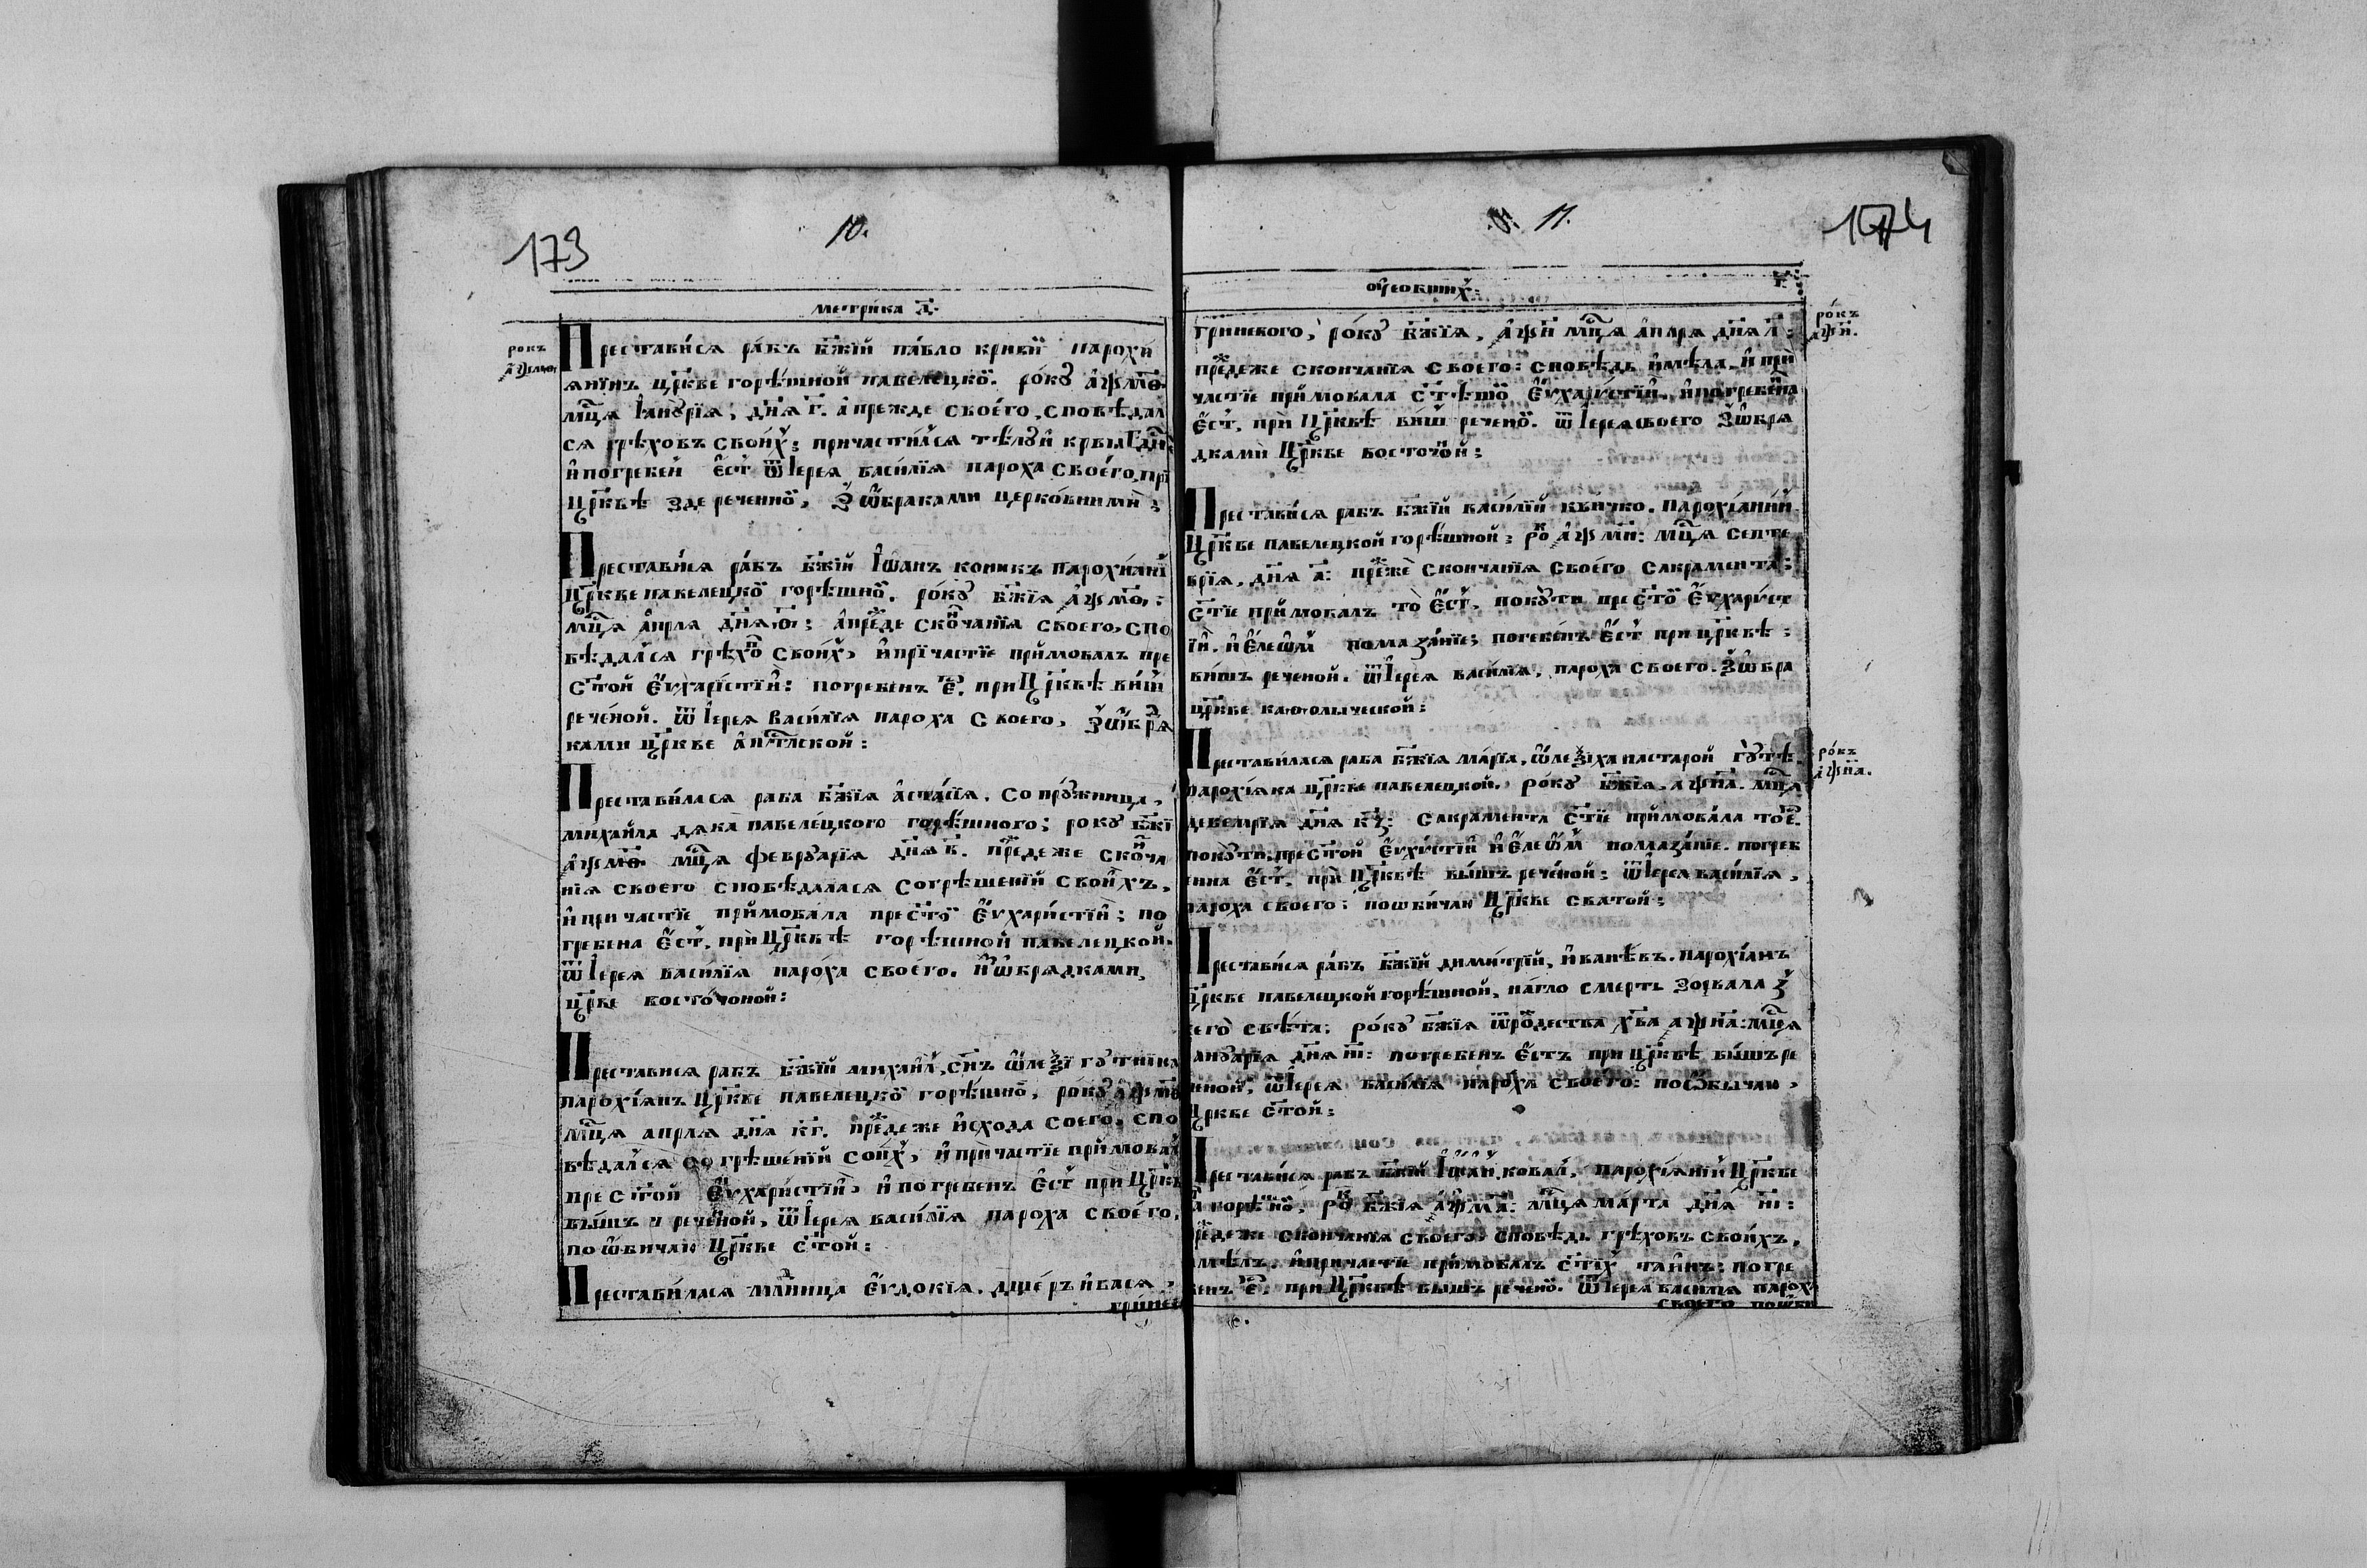 173
10.
метрика д҃.
рокъ
҂аѱмѳ
Преставйся рабъ Бж҃їй па́вло кривїй парохи
янинъ цр҃кве горѣшной павелецко́й. ро́ку ҂аѱмѳ҃.
мц҃а іануа́рїя, дн҃я г҃. а прежде своего, сповѣдал
ся грѣховъ свойх; причастился тѣлу и крви Гд҃ни
и погребен єст ѿ Іерея василїя пароха своего, при
цр҃квѣ зде реченной, З ѡбраками церко́вними;
Преставйся рабъ Бж҃їй Іѡанъ коникъ парохиянї
цр҃кве павелецкой горѣшной. ро́ку бж҃їя ҂аѱмѳ҃:
мц҃а апрла дн҃я ѳ҃; а преде скончанїя своего, спо
вѣдался грѣхо свойх, и прїчастїе прймовалъ пре
ст҃ой Єѵхарїстїи: погребенъ є҃. при цр҃квѣ виш
рече́ной. ѿ Іерея Василїя пароха своего, З ѡбря
ками цр҃кве апс҃лской:
Преставилася раба бж҃їя аста́сїя. сопру́жница,
михайла дяка павеле́цкого горѣшного; року бж҃ї
҂аѱмѳ҃ мц҃а февруарїя дн҃я к҃. предеже сконча
нїя своего сповѣдалася согрѣшенїй свойхъ,
и причастїе прймовала прест҃ой Єѵхарйстїи; по
гребена єст, при цр҃квѣ горѣшной павелецкой.
ѿ Іерея василїя паро́ха своего. и ѡбрядками,
цр҃кве восто́чной:
Преставися рабъ бж҃їй михайл, сн҃ъ ѡлеѯї гутника
парохїянъ цр҃кве павелецкой горѣшной, року ҂аѱмѳ
мц҃а апрля дня кг҃. предеже исхода соего, спо
вѣдался согрѣшенїй сойх, и причастїе прймовал
прест҃ой Єѵхарйстїи, и погребенъ єст при цр҃кв
вышъ реченой, ѿ Іерея василїя пароха своего,
по ѡбичаю цр҃кве ст҃ой:
Преставилася млн҃ица Єѵдокїя. дщеръ ивася,
гринев
11.
174
оусопших:
рокъ
҂аѱн҃.
гриневого, ро́ку бж҃їя, ҂аѱн҃ мц҃а апаря дн҃я л҃:
предеже скончанїя своего: сповѣдь имѣла, и при
частїе прймовала ст҃ѣшо Єѵхарйстїи, и погребена
Єст, при цр҃квѣ виш речено́й. ѿ Іерея своего З ѡбря
дками цр҃кве восточной;
Преставися рабъ бж҃їй василїй кничко. парохїяний
цр҃кве павелецкой горѣшной; ро ҂аѱмн҃: мц҃а септе
врїя, дн҃я а҃: преже скончанїя своего сакрамента;
ст҃їе прймовалъ то єст, покути прест҃о́й Єѵхарйст
їи, и Єлеѡм помаза́нїе; погевенъ єст при цр҃квѣ;
вишъ реченой. ѿ Іерея василїя, пароха своего. З ѡбра
цр҃кве каѳолыческой:
рокъ
҂аѱна҃.
Преставилася раба бж҃їя ма́рїа, ѡлеѯїха на старой гутѣ.
парохїяка цр҃кве павелецкой. року бж҃їя, ҂аѱна҃. мц҃а
декемрїя дн҃я кз҃: сакрамента ст҃їе прймовала то є҃.
покути, прест҃ой Єѵхйстїи и Єлеѡм помаза́нїе. погреб
енна єст, при цр҃квѣ вышъ рече́ной: ѿ Іерея василїя,
пароха своего: по ѡбичаю цр҃кве сватой;
Преставися рабъ бж҃їй димитрїй, иванѣвъ. парохїянъ
цр҃кве павелецкой горѣшной, нагло смерть зорвала з
сего свѣта; року бж҃їя ѿ родества хв҃а ҂аѱна҃: мц҃а
ануарїя дн҃я ні҃: погребенъ єстъ при цр҃квѣ вышъ ре
ченой, ѿ Іерея василїя пароха своего: по ѡбычаю,
цркве ст҃ой;
Преставися рабъ бж҃їй Іѡан, ковал, парохїяний цр҃кве
ро бж҃їя мц҃а ма́рта дн҃я ні҃:
предеже скончанїя своего, сповѣдь грѣховъ свойхъ,
имѣлъ, и причастїе прймовалъ ст҃їх таинъ: погре
бенъ є҃, при цр҃квѣ вышъ речено́й. ѿ Іерея василїя парох
своего по ѡби